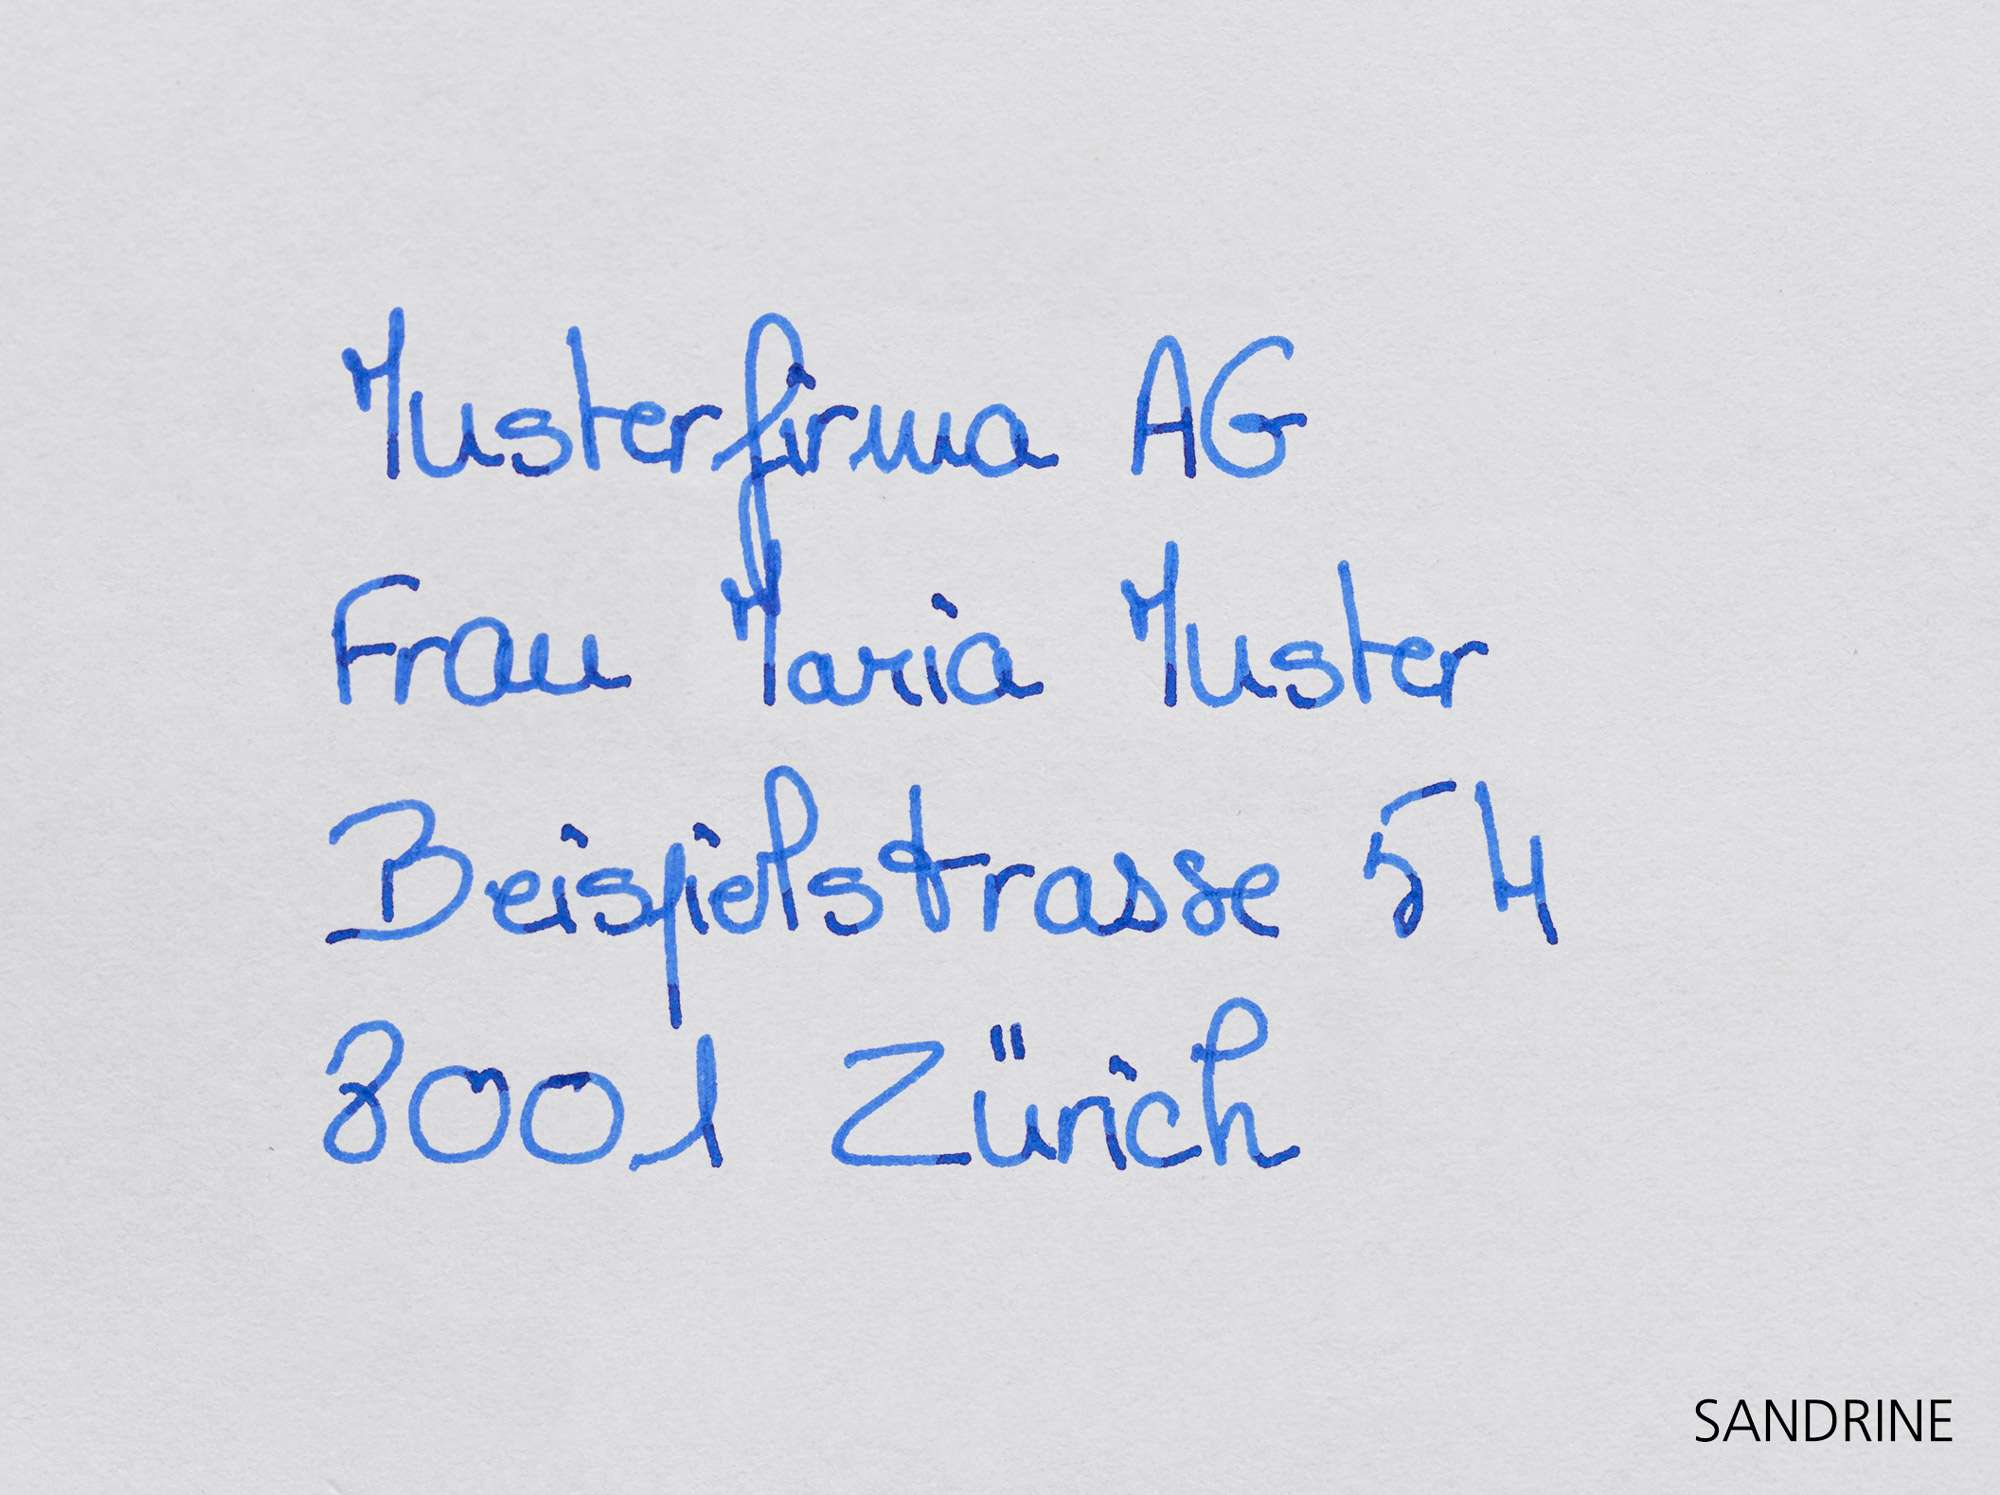 Musterfirma AG
Frau Maria Muster
Beispielstrasse 54
8001 Zürich
SANDRINE